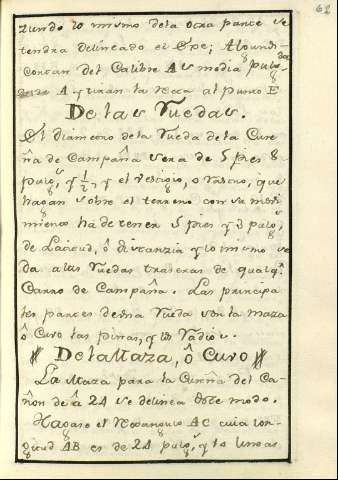 62
ziendo lo mismo dela otra parte se
tendra delineado el Exe; Alos undi-
cortan del Calibre A 4s media pulg.
A y tiran la recta al punto E
De las Ruedas.
El diametro de la Rueda de la Cure
ña de Campaña sera de 5 pies 8
pulg.s y ½, y el vestigio, o rastro, que
hagan sobre el terreno con su movi
miento ha de tener 5 pies y 3 pulg.s
de Latitud, ô distanzia y lo mismo se
da a las Ruedas traseras de qualq.a
Carro de Campaña. Las principa
les partes de una Rueda son la maza
ô Cuvo las pinas, y los Radios.
De la Maza, ô Cuvo
La Maza para la Cureña del Ca-
ñon de â 24 se delinea deste modo.
Hagase el Rectangulo AC cuia lon-
gitud AB es de 24 pulg.s y la linea